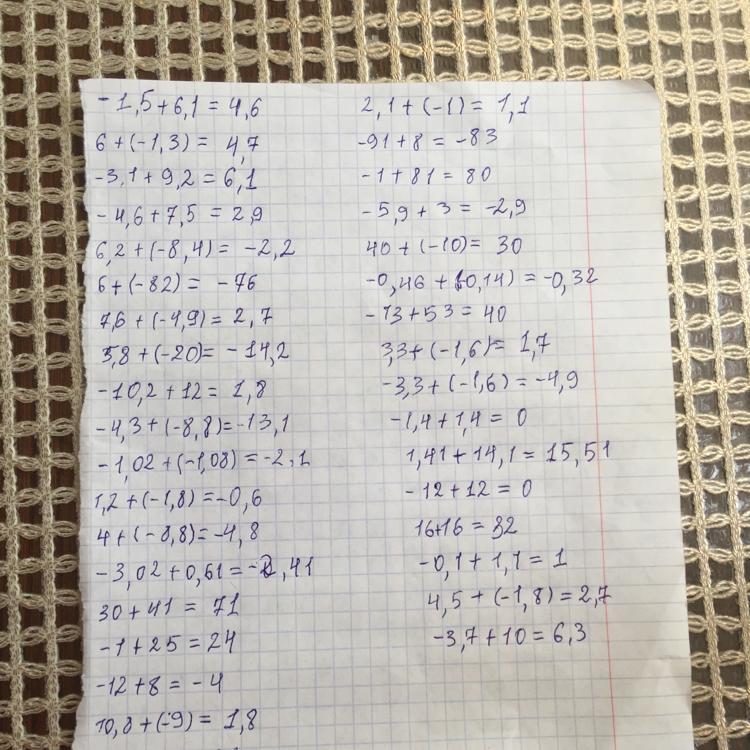 -1,5+6,1 = 4,6
6+(-1,3) = 4,7
-3,1+9,2 = 6,1
-4,6+7,5 = 2,9
6,2+(-8,4) = -2,2
6+(-82) = -76
7,6+(-4,9) = 2,7
5,8+(-20) = -14,2
-10,2+12 = 1,8
-4,3+(-8,8) = -13,1
-1,02+(-1,08) = -2,1
1,2+(-1,8) = -0,6
4+(-8,8) = -4,8
-3,02+0,61 = -2,41
30+41 = 71
-1+25 = 24
-12+8 = -4
10,8+(-9) = 1,8
2,1+(-1) = 1,1
-91+8 = -83
-1+81 = 80
-5,9+3 = -2,9
40+(-10) = 30
-0,46+(0,14) = -0,32
-13+53 = 40
3,3+(-1,6) = 1,7
-3,3+(-1,6) = -4,9
-1,4+1,4 = 0
1,41+14,1 = 15,51
-12+12 = 0
16+16 = 32
-0,1+1,1 = 1
4,5+(-1,8) = 2,7
-3,7+10 = 6,3